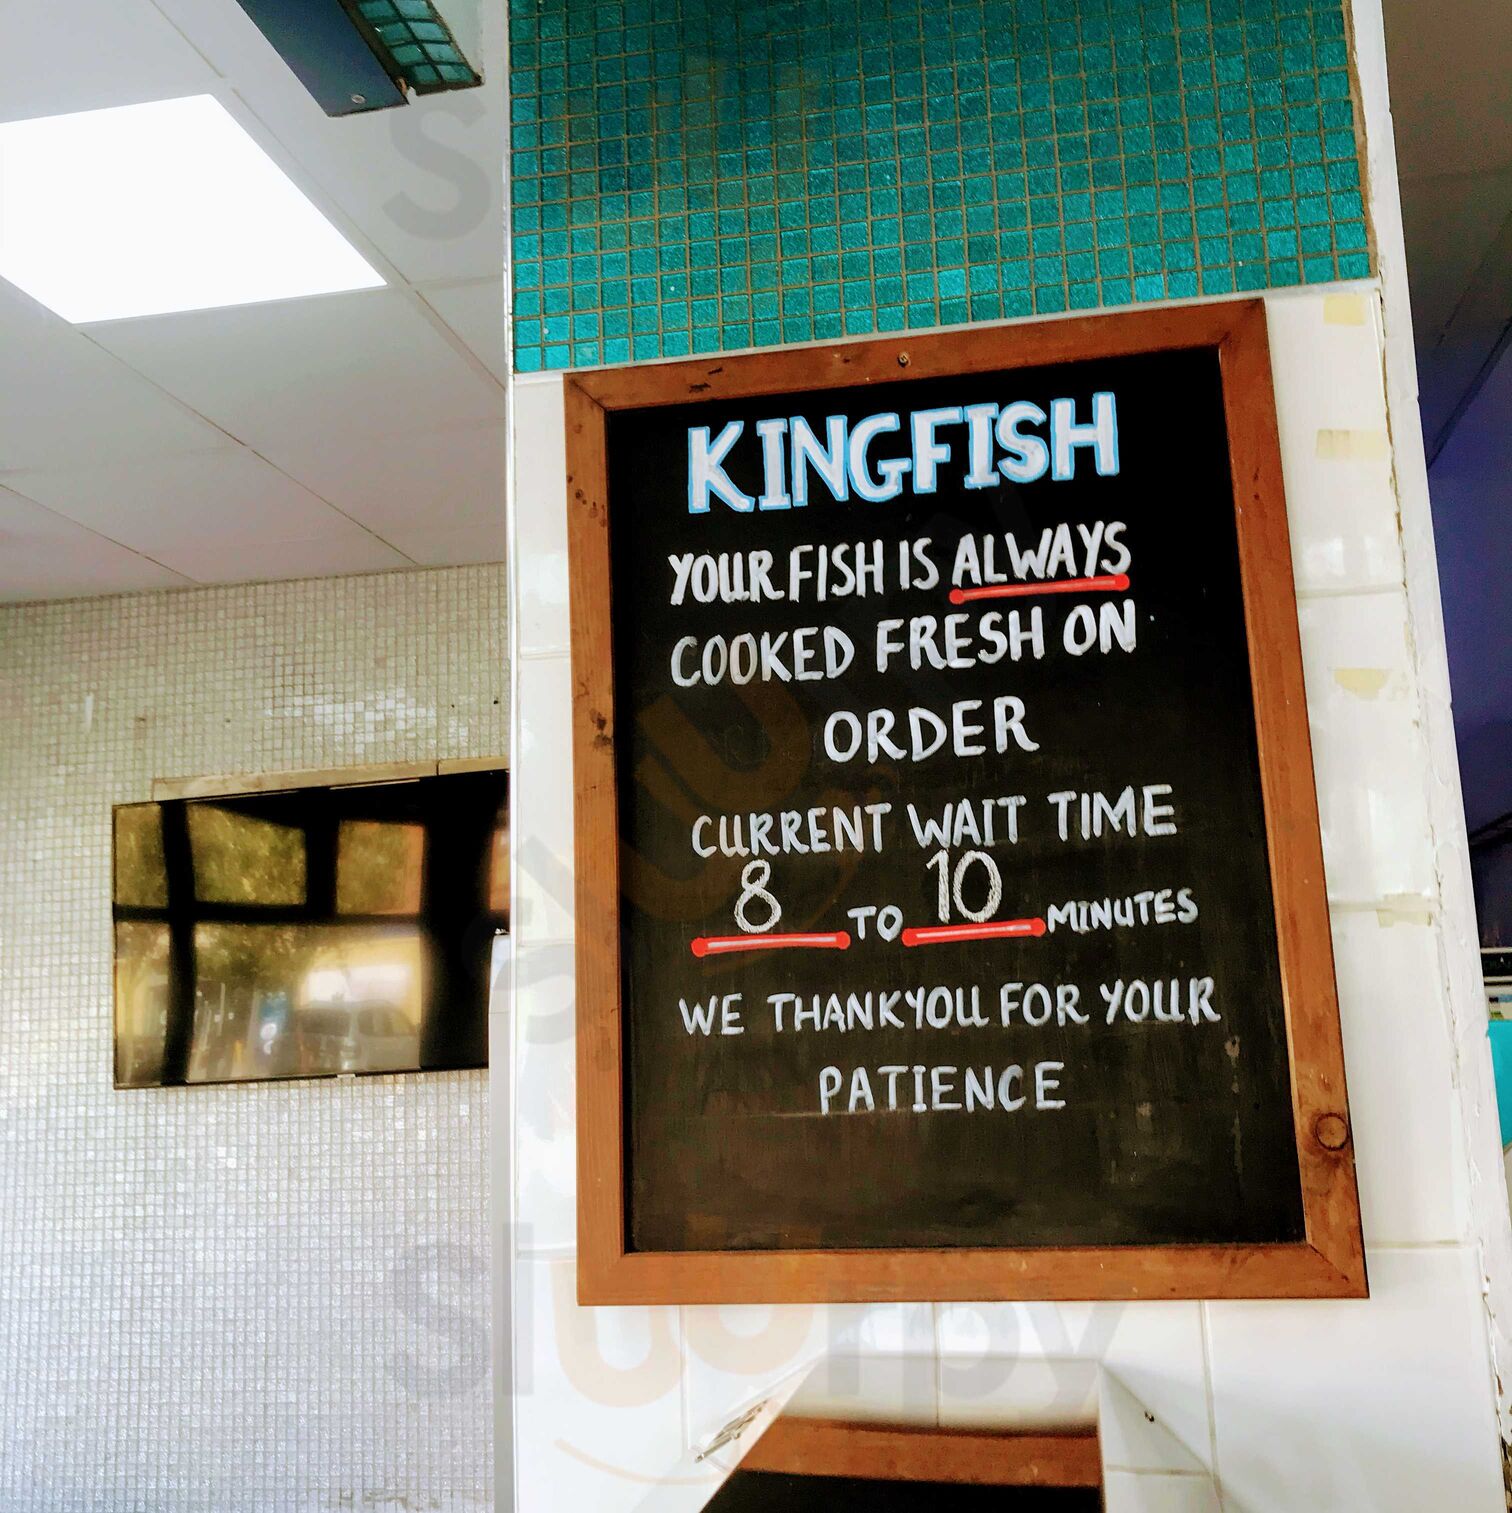 KINGFISH
YOUR FISH IS ALWAYS
COOKED FRESH ON
ORDER
CURRENT WAIT TIME
8 TO 10 MINUTES
WE THANKYOU FOR YOUR
PATIENCE
Slurpy